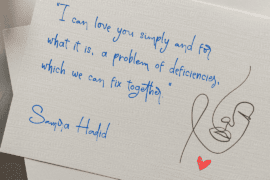 "I can love you simply and for
what it is, a problem of deficiencies,
which we can fix together"
Samra Hadid